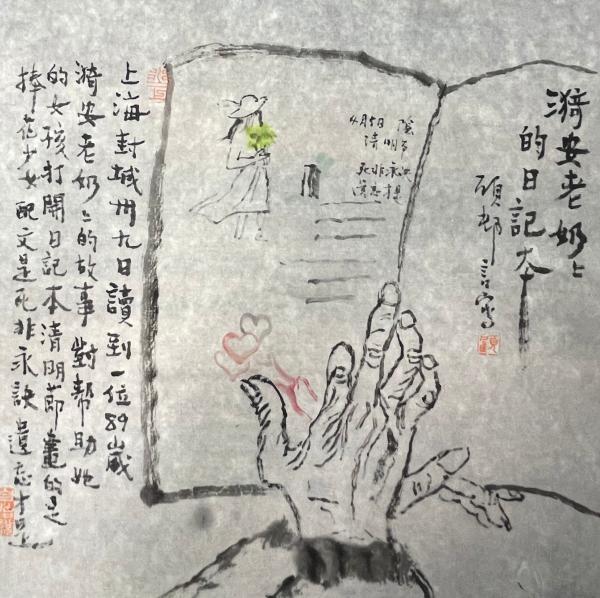 漪安老奶〻
的日記本
顾邨言寫
4月5日
清明
死非永诀
上海封城卅九日讀到一位89歲
漪安老奶〻的故事對幫助她
的女孩打開日記本清明節畫的是
捧花少女配文是死非永訣遺忘才是